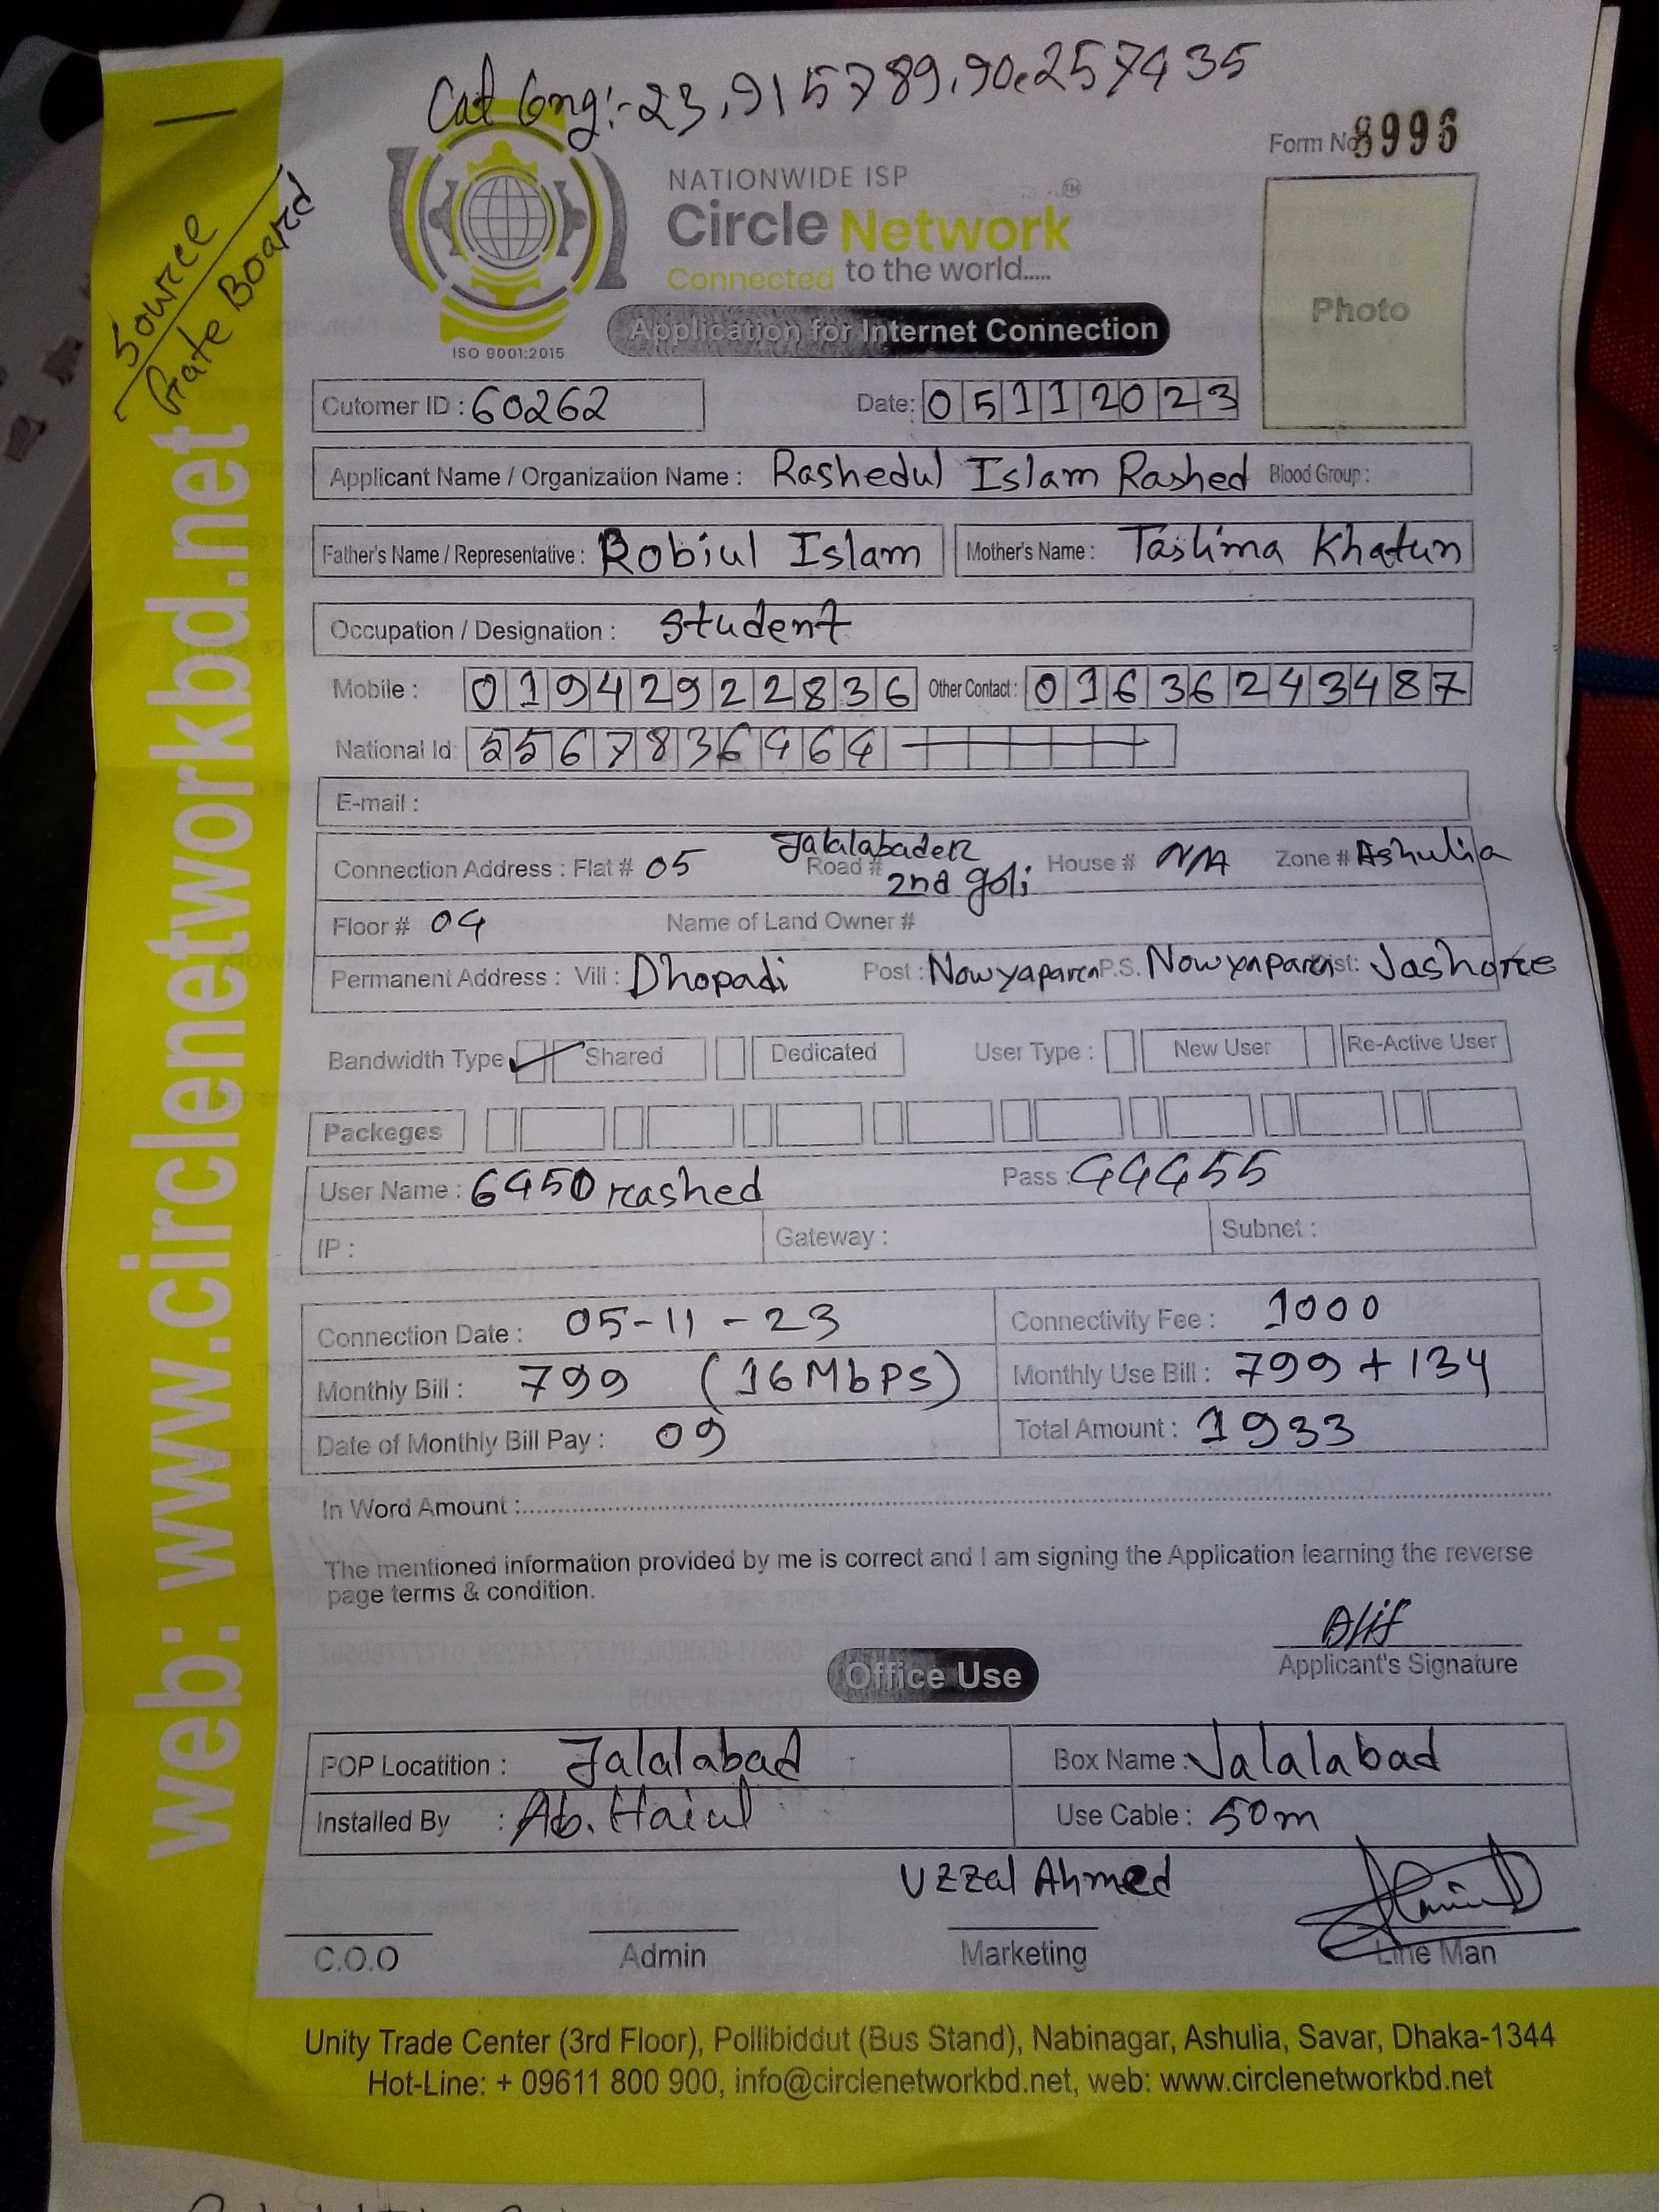 Cat long:-23.915789,90.257435
Form No 8996
NATIONWIDE ISP
Circle Network TM
Connected to the world.....
ISO 9001:2015
Application for Internet Connection
Photo
Source
Gate Board
web: www.circlenetworkbd.net
Cutomer ID : 60262 Date: 05112023
Applicant Name / Organization Name : Rashedul Islam Rashed Blood Group :
Father's Name / Representative : Robiul Islam Mother's Name : Taslima Khatun
Occupation / Designation : Student
Mobile : 01942922836 Other Contact : 01636243487
National Id: 5567836464
E-mail :
Connection Address : Flat # 05 Road # Jalalabader 2nd goli House # N/A Zone # Ashulia
Floor # 04 Name of Land Owner #
Permanent Address : Vill : Dhopadi Post : Nowyapara P.S. Nowyapara Dist: Jashore
Bandwidth Type ✓ Shared Dedicated User Type : New User Re-Active User
Packeges
User Name : 6450rashed Pass : 44455
IP : Gateway : Subnet :
Connection Date : 05-11-23 Connectivity Fee : 1000
Monthly Bill : 799 (16Mbps) Monthly Use Bill : 799 + 134
Date of Monthly Bill Pay : 09 Total Amount : 1933
In Word Amount :
The mentioned information provided by me is correct and I am signing the Application learning the reverse
page terms & condition.
Alif
Applicant's Signature
Office Use
POP Locatition : Jalalabad Box Name : Jalalabad
Installed By : Ab. Haiul Use Cable : 50m
Uzzal Ahmed
C.O.O Admin Marketing Line Man
Unity Trade Center (3rd Floor), Pollibiddut (Bus Stand), Nabinagar, Ashulia, Savar, Dhaka-1344
Hot-Line: + 09611 800 900, info@circlenetworkbd.net, web: www.circlenetworkbd.net